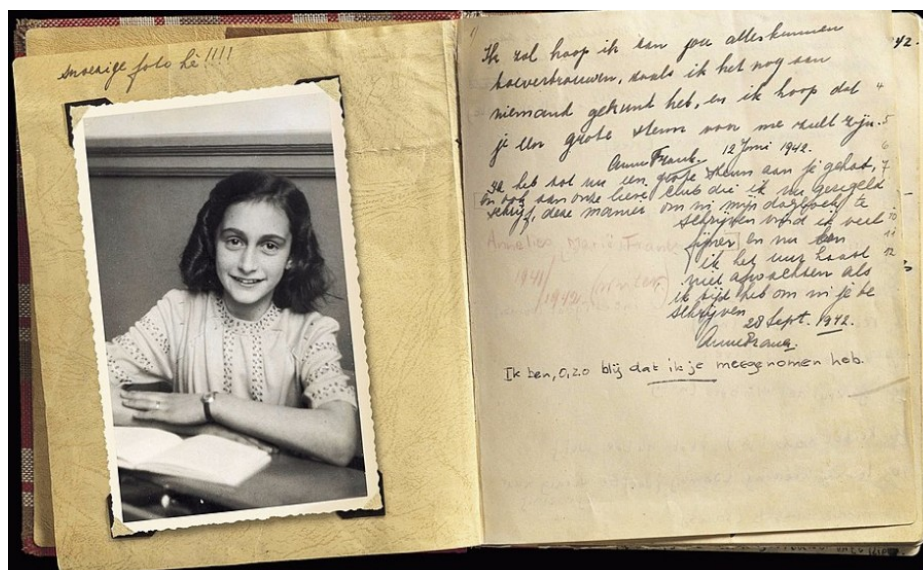 snoezige foto hè!!!!
Ik zal hoop ik aan jou alles kunnen
toevertrouwen, zoals ik het nog aan
niemand gekund heb, en ik hoop dat
je een grote steun voor me zult zijn.
Anne Frank. 12 Juni 1942.
Ik heb tot nu een grote steun aan je gehad,
en ook aan onze lieve club die ik nu geregeld
schrijf, deze manier om in mijn dagboek te
schrijven vind ik veel
fijner en nu kan
ik het uur haast
niet afwachten als
ik tijd heb om in je te
schrijven
28 Sept. 1942.
Anne Frank.
Ik ben, O, zo blij dat ik je meegenomen heb.
Annelies Marie Frank
1941/1942
(winter)
42.